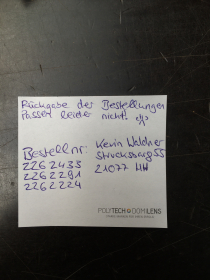 Rückgabe der Bestellungen
Passen leider nicht!
Bestellnr: Kevin Waldner
2262433 Strucksbarg 55
2262291 21077 HH
2262224
POLYTECH DOMILENS